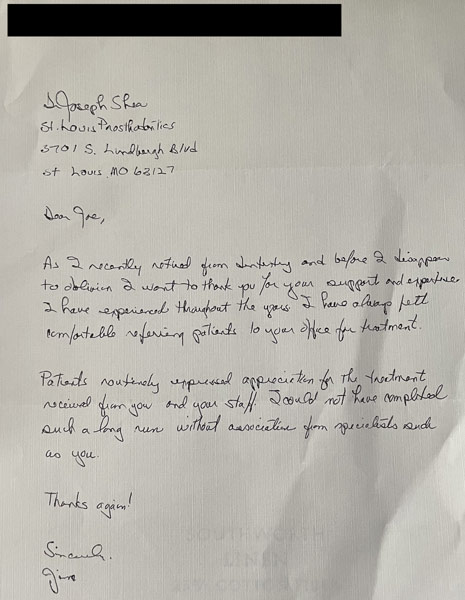 J Joseph Shea
St. Louis Prosthodontics
3701 S. Lindbergh Blvd
St Louis, MO 63127
Dear Joe,
As I recently retired from dentistry and before I disappear
to oblivion I want to thank you for your support and expertise
I have experienced throughout the years. I have always felt
comfortable referring patients to your office for treatment.
Patients routinely expressed appreciation for the treatment
received from you and your staff. I could not have completed
such a long run without association from specialists such
as you.
Thanks again!
Sincerely.
Jim
SOUTHWORTH
LINEN